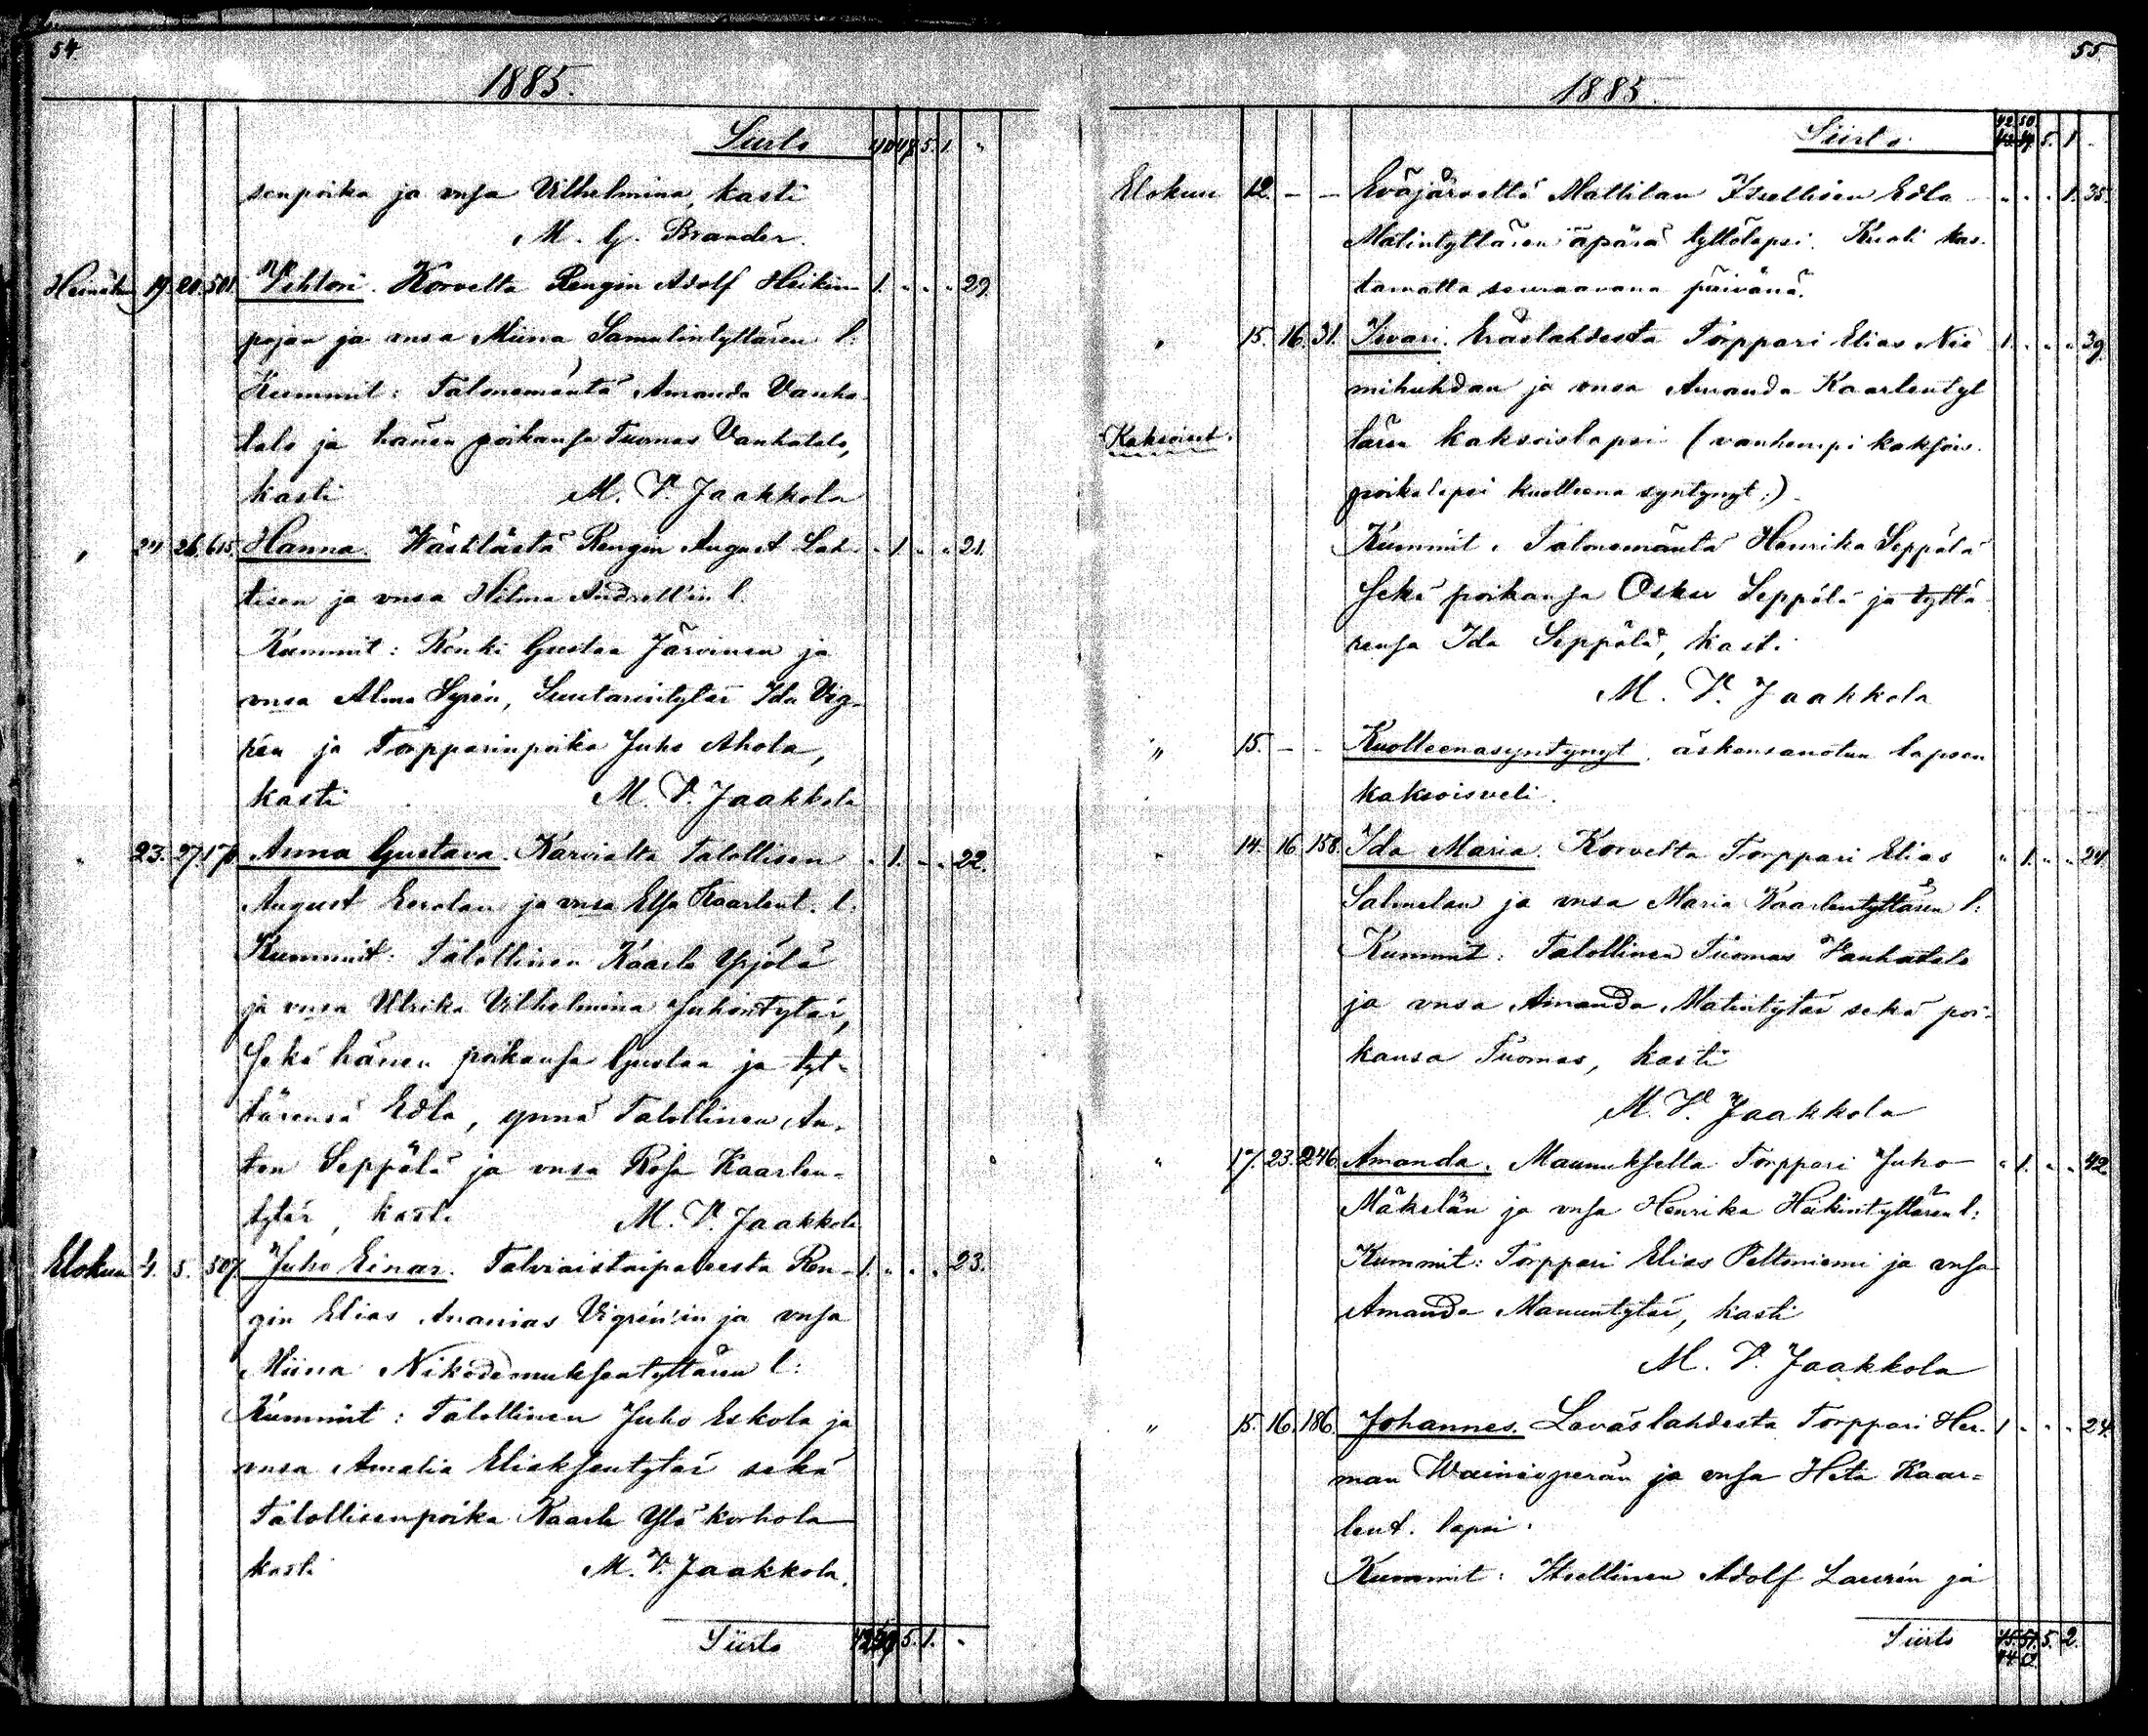 54.
1885.
Siirto 5. 1. "
senpoika ja vnsa Vilhelmina, kasti
M. G. Brander.
Heinäk 19. 20. 501. Vihtori. Korvelta Rengin Adolf Heikin- 1. " " " 29.
pojan ja vnsa Miina Samulintyttären l:
Kummit: Talonemäntä Amanda Vanha-
talo ja hänen poikansa Tuomas Vanhatalo,
kasti M. V. Jaakkola
" 26. 615. Hanna. Wästilästä Rengin August Lah- " 1. " " 21.
tisen ja vnsa Hilma l.
Kummit: Renki Gustaa Järvinen ja
vnsa Alma Syrén, Suutarintytär Ida Vig-
rén ja Torpparinpoika Juho Ahola,
kasti M. V. Jaakkola
" 23. 27. 170 Anna Gustava. Karvialta talollisen " 1. " " 22.
August Eerolan ja vnsa Elsa Kaarlent. l:
Kummit: Talollinen Kaarlo Yrjölä
ja vnsa Ulrika Vilhelmina Juhontytär,
sekä hänen poikansa Gustaa ja tyt-
tärensä Edla, ynnä Talollinen An-
ton Seppälä ja vnsa Rosa Kaarlen-
tytär, kasti M. V. Jaakkola
Elokun 4. 5. 507. Juho Einar. Talviaistaipaleesta Ren- 1. " " " 23.
gin Elias Ananias Vigrén'in ja vnsa
Miina Nikodemuksentyttären l:
Kummit: Talollinen Juho Eskola ja
vnsa Amalia Eliaksentytär sekä
Talollisenpoika Kaarle Ylä korhola
kasti M. V. Jaakkola.
Siirto 5. 1. "
55.
1885.
Siirto 42 50 5. 1. "
Elokun 12. — — Eväjärveltä Mattilan Itsellisen Edla " " " 1. 35.
Matintyttären äpärä tyttölapsi. Kuoli kas-
tamatta seuraavana päivänä.
" 15. 16. 31. Iivari. Eräslahdesta Torppari Elias Nie 1. " " " 39.
mihuhdan ja vnsa Amanda Kaarlentyt
Kaksoiset. tären kaksoislapsi (vanhempi kaksois-
poikalapsi kuolleena syntynyt:)
Kummit: Talonemäntä Henrika Seppälä
sekä poikansa Oskar Seppälä ja tyttä-
rensa Ida Seppälä, kasti
M. V. Jaakkola
" 15. — — Kuolleenasyntynyt. äskensanotun lapsen
kaksoisveli.
" 14. 16. 158. Ida Maria. Korvelta Torppari Elias " 1. " " 24.
Salmelan ja vnsa Maria Kaarlentyttären l:
Kummit: Talollinen Tuomas Vanhatalo
ja vnsa Amanda Matintytär sekä poi-
kansa Tuomas, kasti
M. V. Jaakkola
" 17. 23. 246. Amanda. Maunuksella Torppari Juho " 1. " " 42
Mäkelän ja vnsa Henrika Heikintyttären l:
Kummit: Torppari Elias Peltoniemi ja vnsa
Amanda Manuntytär, kasti
M. V. Jaakkola
" 15. 16. 186. Johannes. Laväslahdesta Torppari Her- 1 " " " 24.
man Wainioperän ja vnsa Heta Kaar-
lent. lapsi.
Kummit: Itsellinen Adolf Laurén ja
Siirto 5. 2.